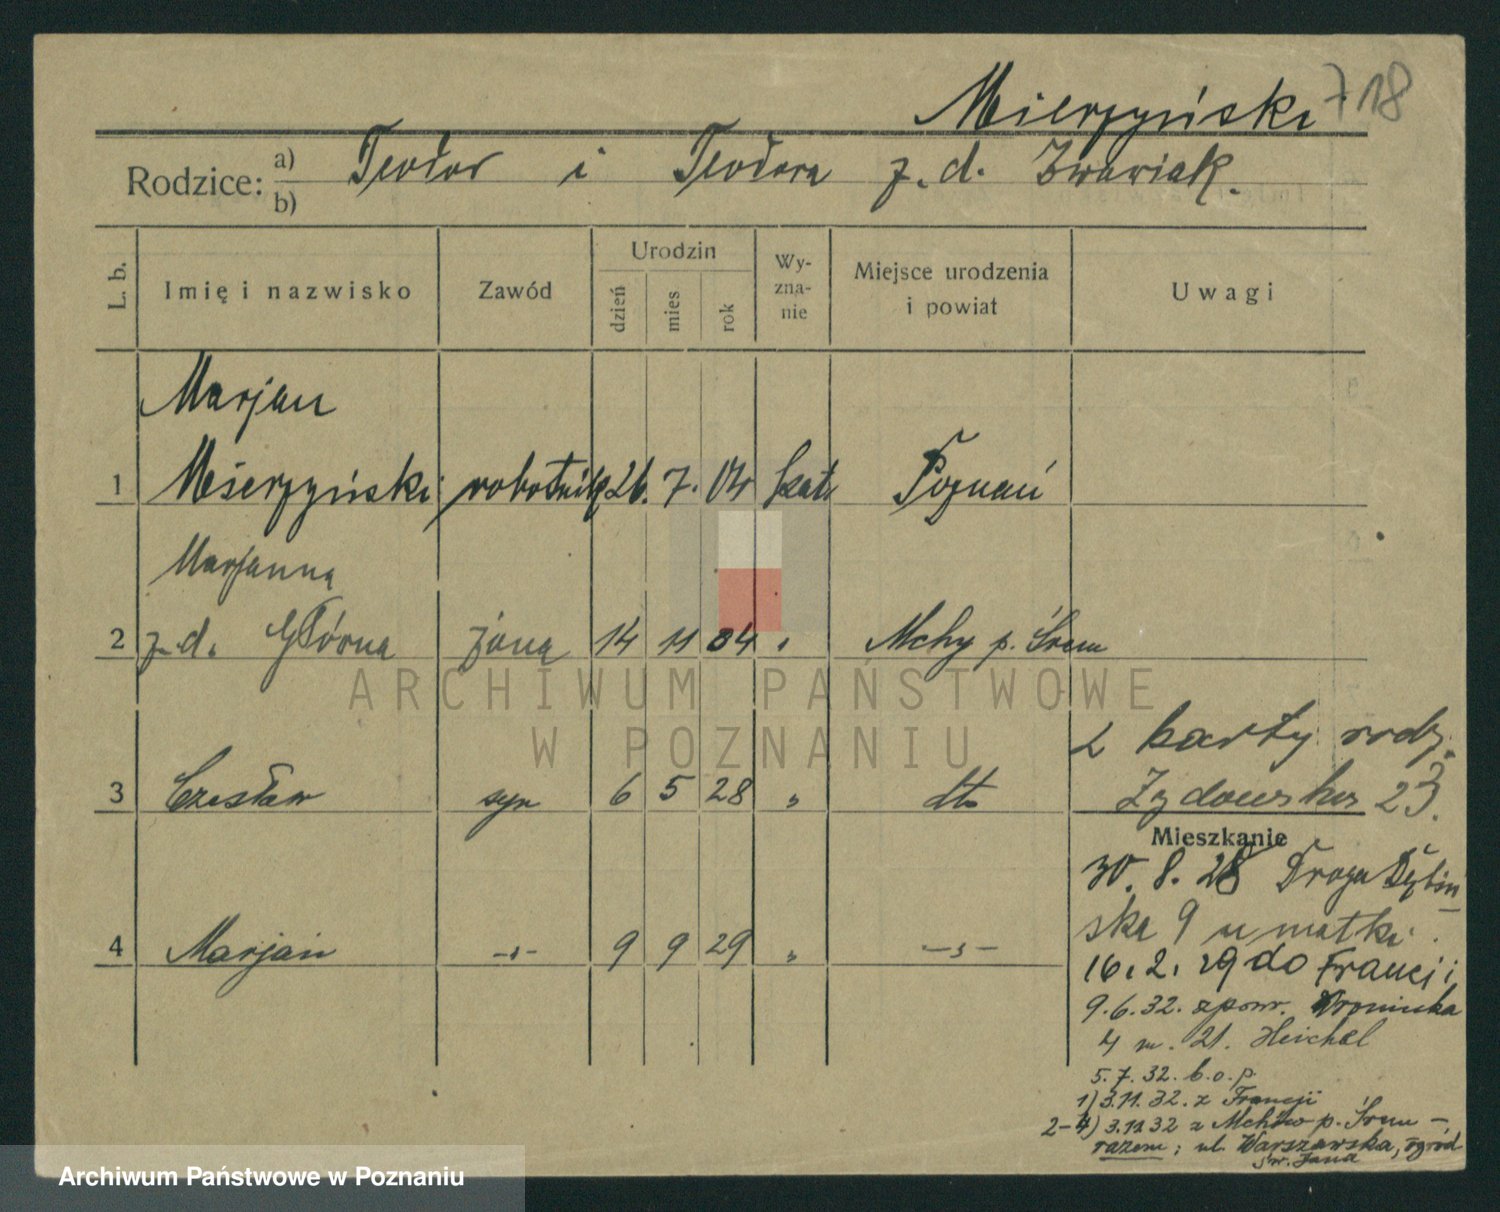 Mierzyński 718
Rodzice: a) Teodor i Teodora z. d. Zwawiak.
b)
L. b.
Imię i nazwisko
Zawód
Urodzin
dzień
mies
rok
Wy-
zna-
nie
Miejsce urodzenia
i powiat
Uwagi
Marjan
1 Mierzyński robotnik 26. 7. 04 kat. Poznań
Marjanna
2 z. d. Główna żona 14 11 04 " Mchy p. Śrem
z karty rodz.
3 Czesław syn 6 5 28 " dto
Żydowska 23.
Mieszkanie
30. 8. 28 Droga Dębiń
ska 9 u matki
4 Marjan -"- 9 9 29 " -"-
16. 2. 29 do Francji
9. 6. 32. zpow.
4 m. 21. Heichel
5. 7. 32. b. o. p.
1) 3. 11. 32. z Francji
2-4) 3.11.32 z Mchów p. Śrem -
razem; ul. Warszawska, ogród
św. Jana
ARCHIWUM PAŃSTWOWE
W POZNANIU
Archiwum Państwowe w Poznaniu